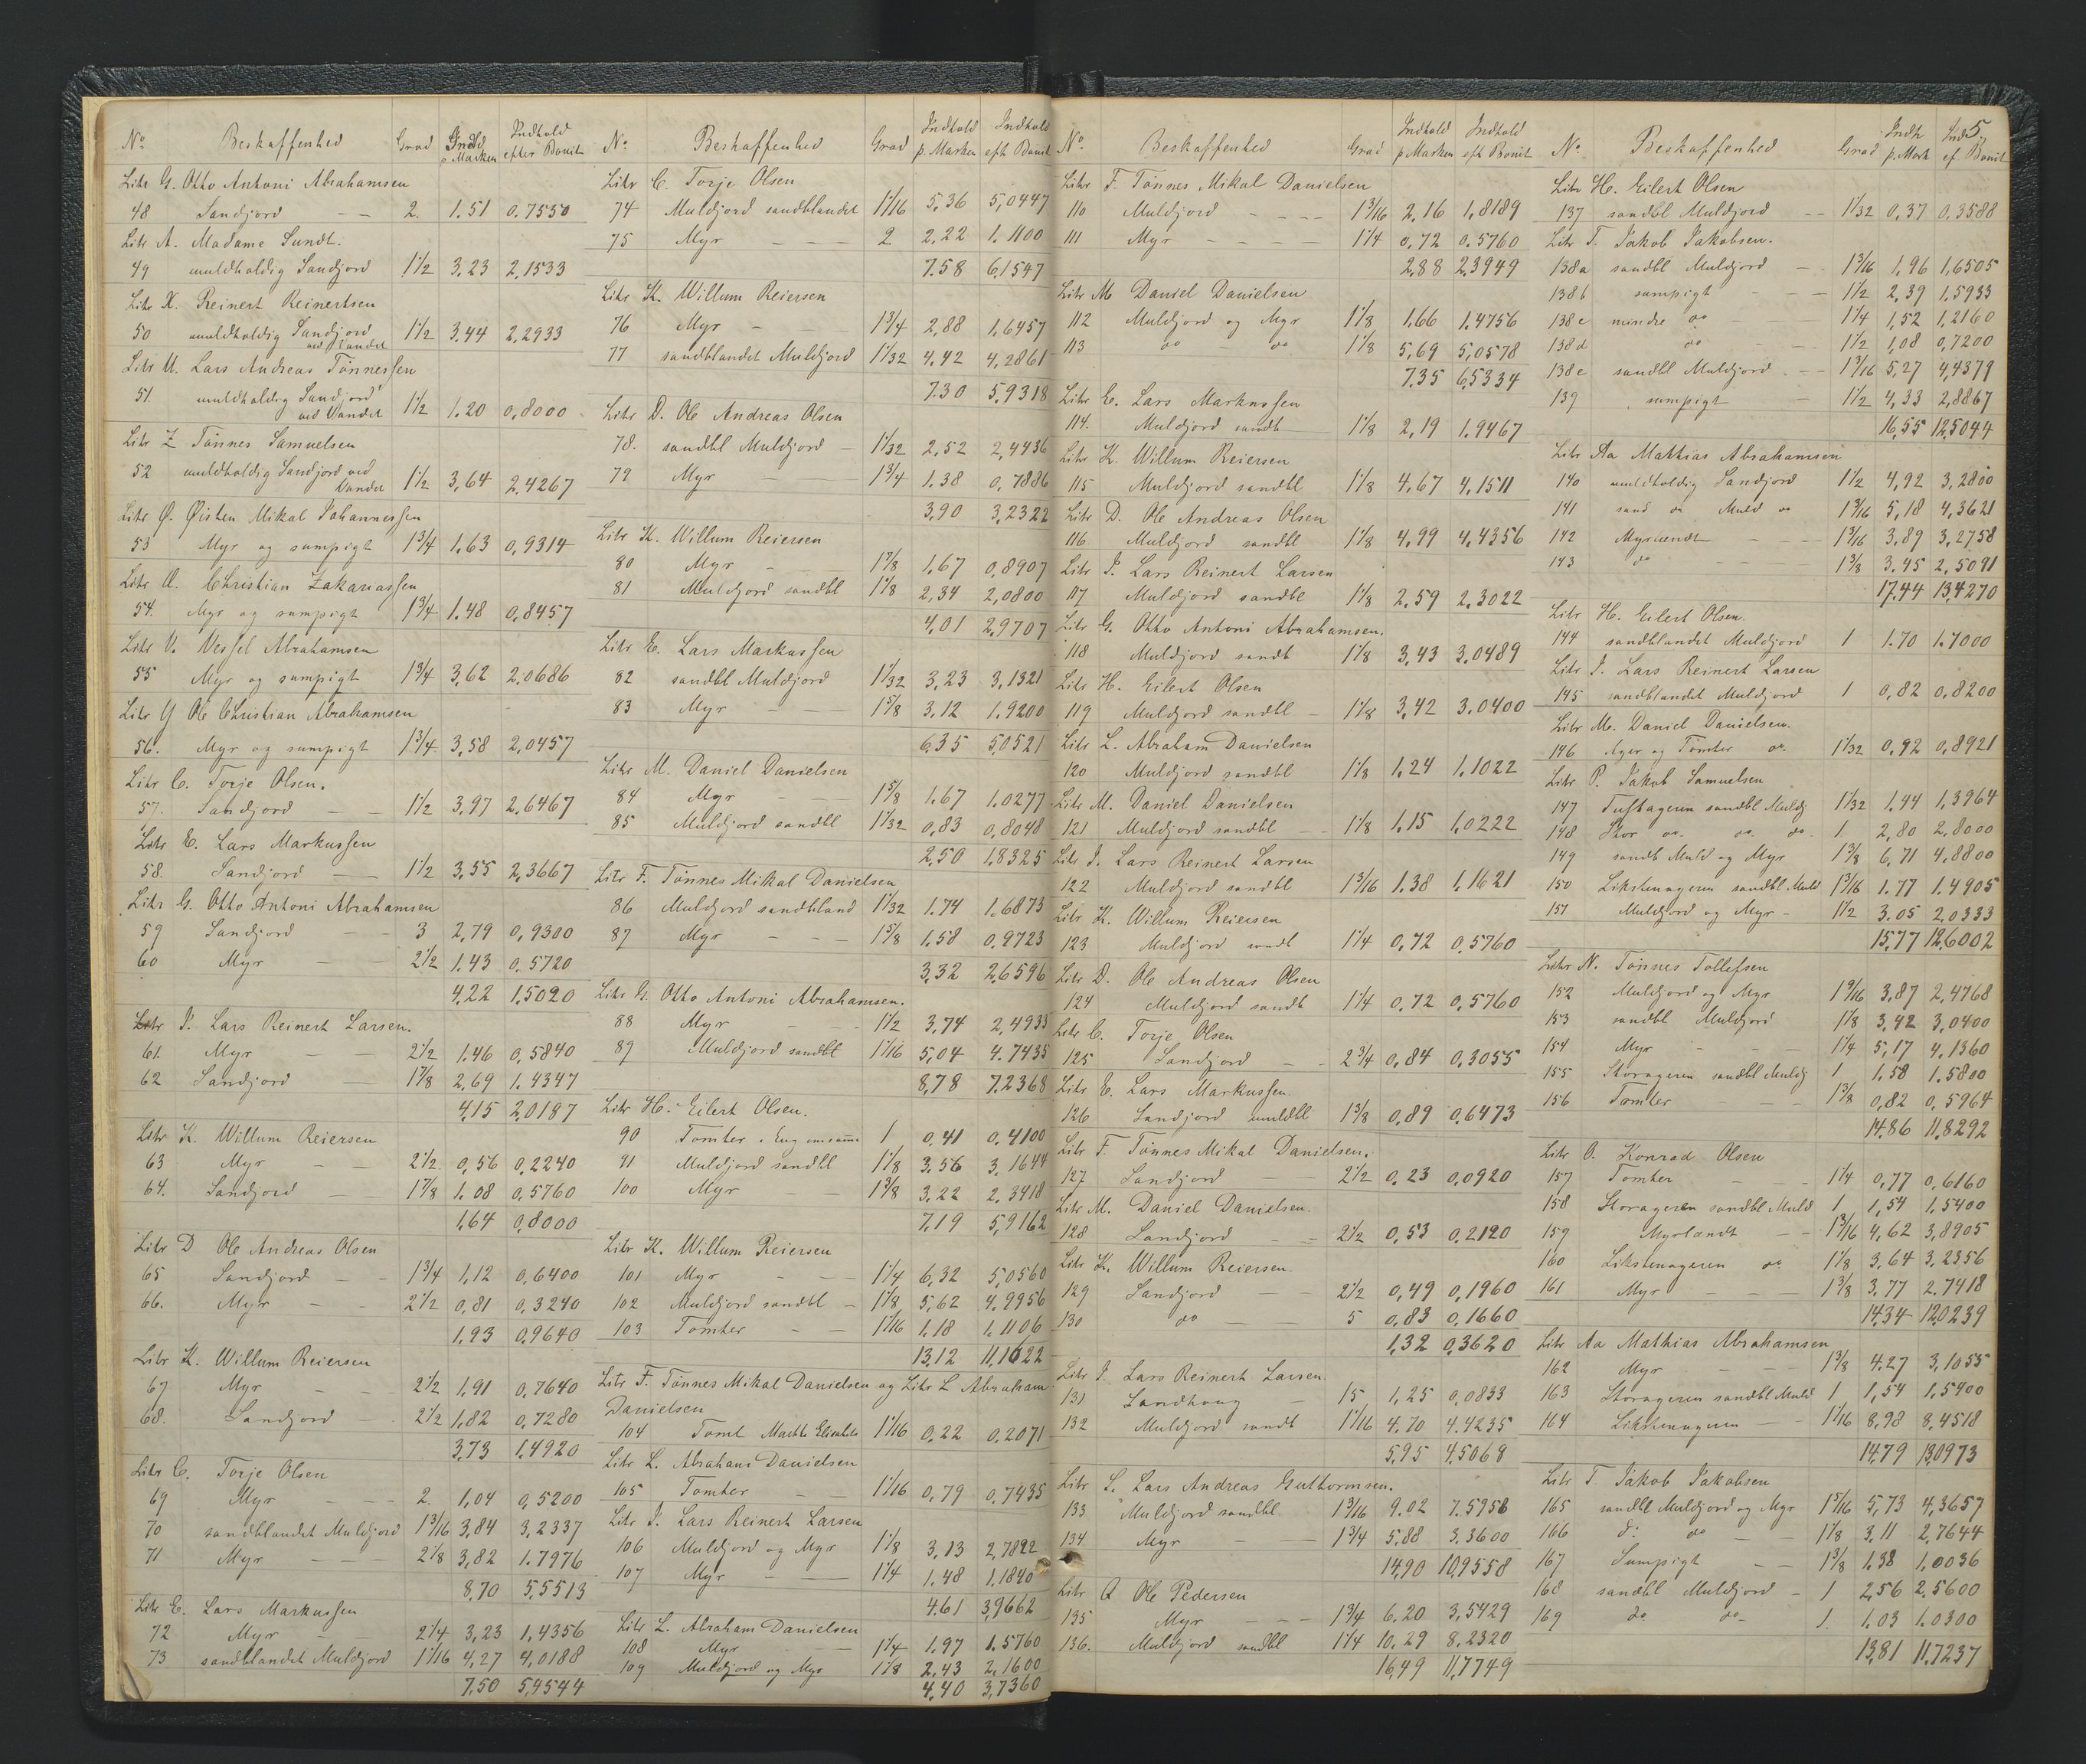 No Beskaffenhed Grad Indh p. Marken Indhold efter Bonit
Litr G. Otto Antoni Abrahamsen
48 Sandjord — — 2. 1.51 0.7550
Litr A. Madame Sundt.
49 muldholdig Sandjord 1 1/2 3,23 2,1533
Litr X. Reinert Reinertsen
50 muldholdig Sandjord 1 1/2 3,44 2,2933
ved Vandet
Litr U. Lars Andreas Tønnessen
51. muldholdig Sandjord 1 1/2 1.20 0,8000
ved Vandet
Litr Z Tønnes Samuelsen
52 muldholdig Sandjord ved 1 1/2 3,64 2,4267
Vandet
Litr Ø. Øisten Mikal Johannessen
53 Myr og sumpigt 1 3/4 1.63 0,9314
Litr Æ. Christian Zakariassen
54. Myr og sumpigt 1 3/4 1.48 0,8457
Litr V. Vessel Abrahamsen
55 Myr og sumpigt 1 3/4 3,62 2.0686
Litr Y Ole Christian Abrahamsen
56. Myr og sumpigt 1 3/4 3,58 2,0457
Litr C. Torje Olsen.
57. Sandjord — 1 1/2 3,97 2,6467
Litr E. Lars Markussen
58. Sandjord — 1 1/2 3,55 2,3667
Litr G. Otto Antoni Abrahamsen
59 Sandjord — 3 2,79 0,9300
60 Myr — 2 1/2 1.43 0.5720
4,22 1,5020
Litr J. Lars Reinert Larsen.
61. Myr — — 2 1/2 1.46 0,5840
62 Sandjord — 1 7/8 2,69 1.4347
4,15 2,0187
Litr K. Willum Reiersen
63 Myr — — 2 1/2 0,56 0,2240
64. Sandjord — 1 7/8 1.08 0,5760
1,64 0,8000
Litr D Ole Andreas Olsen
65 Sandjord — — 1 3/4 1,12 0,6400
66. Myr — — 2 1/2 0,81 0,3240
1,93 0,9640
Litr K. Willum Reiersen
67 Myr — — 2 1/2 1,91 0,7640
68. Sandjord — 2 1/2 1,82 0,7280
3,73 1,4920
Litr C. Torje Olsen
69 Myr — — 2. 1,04 0,5200
70 sandblandet Muldjord 1 3/16 3,84 3,2337
71 Myr — — 2 1/8 3,82 1.7976
8,70 5,5513
Litr E. Lars Markussen
72 Myr — — 2 1/4 3,23 1,4356
73 sandblandet Muldjord 1 1/16 4,27 4,0188
7,50 5,4544
No. Beskaffenhed Grad Indhold p. Marken Indhold eft Bonit
Litr C. Torje Olsen
74 Muldjord sandblandet 1 1/16 5,36 5,0447
75 Myr — — — 2 2,22 1.1100
7.58 6,1547
Litr K. Willum Reiersen
76 Myr — — 1 3/4 2,88 1,6457
77 sandblandet Muldjord 1 1/32 4,42 4,2861
7.30 5,9318
Litr D. Ole Andreas Olsen
78. sandbl Muldjord — 1 1/32 2,52 2,4436
79 Myr — 1 3/4 1.38 0,7886
3,90 3,2322
Litr K. Willum Reiersen
80 Myr — 1 7/8 1.67 0,8907
81 Muldjord sandbl 1 1/8 2,34 2,0800
4,01 2,9707
Litr E. Lars Markussen
82 sandbl Muldjord 1 1/32 3,23 3,1321
83 Myr — — 1 5/8 3,12 1.9200
6,35 5,0521
Litr M. Daniel Danielsen
84 Myr — — 1 5/8 1.67 1.0277
85 Muldjord sandbl 1 1/32 0,83 0,8048
2,50 1,8325
Litr F. Tønnes Mikal Danielsen
86 Muldjord sandbland 1 1/32 1.74 1.6873
87 Myr — — — 1 5/8 1,58 0,9723
3,32 2,6596
Litr G. Otto Antoni Abrahamsen.
88 Myr — — 1 1/2 3,74 2,4933
89 Muldjord sandbl 1 1/16 5,04 4.7435
8,78 7,2368
Litr H. Eilert Olsen.
90 Tomter 1 0,41 0,4100
91 Muldjord sandbl 1 1/8 3,56 3,1644
100 Myr — — 1 3/8 3,22 2,3418
7,19 5,9162
Litr K. Willum Reiersen
101 Myr — — — 1 1/4 6,32 5,0560
102 Muldjord sandbl — 1 1/8 5,62 4,9956
103 Tomter — — 1 1/16 1.18 1.1106
13,12 11,1622
Litr F. Tønnes Mikal Danielsen og Litr L Abraham
Danielsen
104 Tomt Marthe Elisabeth 1 1/16 0,22 0,2071
Litr L. Abraham Danielsen
105 Tomter — — 1 1/16 0,79 0,7435
Litr J. Lars Reinert Larsen
106 Muldjord og Myr 1 1/8 3,13 2,7822
107 Myr — — 1 1/4 1.48 1.1840
4.61 3,9662
Litr L. Abraham Danielsen
108 Myr — — 1 1/4 1.97 1.5760
109 Muldjord og Myr 1 1/8 2.43 2,1600
4,40 3,7360
No. Beskaffenhed Grad Indhold p Marken Indhold eft Bonit
Litr F. Tønnes Mikal Danielsen
110 Muldjord — — — 1 3/16 2,16 1,8189
111 Myr — — — — 1 1/4 0,72 0.5760
2,88 2,3949
Litr M Daniel Danielsen
112 Muldjord og Myr 1 1/8 1,66 1.4756
113 do — do 1 1/8 5,69 5,0578
7,35 6,5334
Litr E. Lars Markussen
114. Muldjord sandt 1 1/8 2,19 1.9467
Litr K. Willum Reiersen
115 Muldjord sandbl 1 1/8 4,67 4,1511
Litr D. Ole Andreas Olsen
116 Muldjord sandbl 1 1/8 4,99 4,4356
Litr J. Lars Reinert Larsen
117 Muldjord sandbl 1 1/8 2,59 2,3022
Litr G. Otto Antoni Abrahamsen.
118 Muldjord sandt 1 1/8 3,43 3,0489
Litr H. Eilert Olsen
119 Muldjord sandbl — 1 1/8 3,42 3.0400
Litr L. Abraham Danielsen
120 Muldjord sandbl 1 1/8 1,24 1,1022
Litr M. Daniel Danielsen
121 Muldjord sandbl — 1 1/8 1,15 1,0222
Litr J. Lars Reinert Larsen
122 Muldjord sandbl 1 3/16 1.38 1,1621
Litr K. Willum Reiersen
123 Muldjord sandt 1 1/4 0,72 0,5760
Litr D. Ole Andreas Olsen
124 Muldjord sandt 1 1/4 0,72 0,5760
Litr C. Torje Olsen
125 Sandjord — — 2 3/4 0,84 0,3055
Litr E. Lars Markussen.
126 Sandjord muldbl 1 3/8 0,89 0,6473
Litr F. Tønnes Mikal Danielsen.
127 Sandjord — — 2 1/2 0,23 0,0920
Litr M. Daniel Danielsen.
128 Sandjord — — 2 1/2 0,53 0,2120
Litr K. Willum Reiersen
129 Sandjord — — 2 1/2 0,49 0,1960
130 do — 5 0,83 0,1660
1,32 0,3620
Litr J Lars Reinert Larsen.
131 Sandhoug — 15 1,25 0,0833
132 Muldjord sandt 1 1/16 4.70 4.4235
5,95 4,5068
Litr S. Lars Andreas Guthormsen.
133 Muldjord sandbl. 1 3/16 9,02 7.5958
134 Myr — — 1 3/4 5,88 3.3600
14,90 10,9558
Litr Q Ole Pedersen
135 Myr — — — 1 3/4 6.20 3,5429
136. Muldjord sandbl 1 1/4 10,29 8,2320
16,49 11,7749
5
No. Beskaffenhed Grad Indh p. Mark Indh ef Bonit
Litr H. Eilert Olsen
137 sandbl Muldjord — — 1 1/32 0,37 0,3588
Litr T. Jakob Jakobsen.
138a sandbl Muldjord — 1 3/16 1,96 1,6505
138b sumpigt — — 1 1/2 2,39 1,5933
138c mindre do — — 1 1/4 1,52 1,2160
138d do — 1 1/2 1,08 0,7200
138e sandbl Muldjord — — 1 3/16 5,27 4,4379
139 sumpigt — 1 1/2 4,33 2,8867
16,55 12,5044
Litr Aa Mathias Abrahamsen
140 muldholdig Sandjord 1 1/2 4,92 3,2800
141 sand do Muld do 1 3/16 5,18 4,3621
142 Myrlændt — — 1 3/16 3,89 3,2758
143 do — — — 1 3/8 3.45 2,5091
17,44 13,4270
Litr H. Eilert Olsen.
144 sandblandet Muldjord 1 1.70 1.7000
Litr J. Lars Reinert Larsen
145 sandblandet Muldjord 1 0,82 0,8200
Litr M. Daniel Danielsen.
146 Ager og Tomter do. 1 1/32 0,92 0,8921
Litr P. Jakob Samuelsen
147 Tuftageren sandbl Muldj 1 1/32 1,44 1,3964
148 Stor do. do. do. 1 2,80 2,8000
149 sandb Muld og Myr 1 3/8 6,71 4,8800
150 Likstenageren sandbl Muld 1 3/16 1.77 1.4905
151 Muldjord og Myr — 1 1/2 3.05 2,0333
15,77 12,6002
Litr N. Tønnes Tollefsen
152 Muldjord og Myr 1 9/16 3,87 2,4768
153 sandbl Muldjord 1 1/8 3,42 3,0400
154 Myr — — — 1 1/4 5,17 4,1360
155 Storageren sandbl Muldj 1 1,58 1.5800
156 Tomter — — 1 3/8 0,82 0,5964
14,86 11,8292
Litr O. Konrad Olsen
157 Tomter — — 1 1/4 0,77 0,6160
158 Storageren sandbl Muld 1 1,54 1,5400
159 Myrlændt — — 1 3/16 4,62 3,8905
160 Likstenageren do 1 1/8 3,64 3,2356
161 Myr — — — 1 3/8 3,77 2.7418
14,34 12,0239
Litr Aa Mathias Abrahamsen
162 Myr — — — 1 3/8 4.27 3,1055
163 Storageren sandbl Muld 1 1,54 1,5400
164 Likstenageren — — 1 1/16 8,98 8,4518
14,79 13,0973
Litr T Jakob Jakobsen
165 sandbl Muldjord og Myr 1 5/16 5,73 4,3657
166 do do — 1 1/8 3,11 2,7644
167 Sumpigt — — 1 3/8 1.38 1,0036
168 sandbl Muldjord — 1 2,56 2,5600
169 do do — 1. 1.03 1.0300
13,81 11,7237